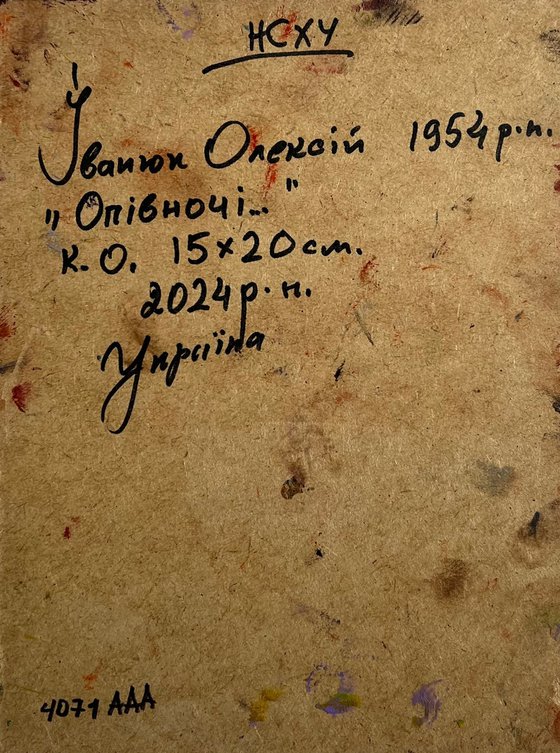 НСХУ
Іванюк Олексій 1954 р.н.
"Опівночі..."
к.о. 15×20 см.
2024 р.н.
Україна
4071 ААА